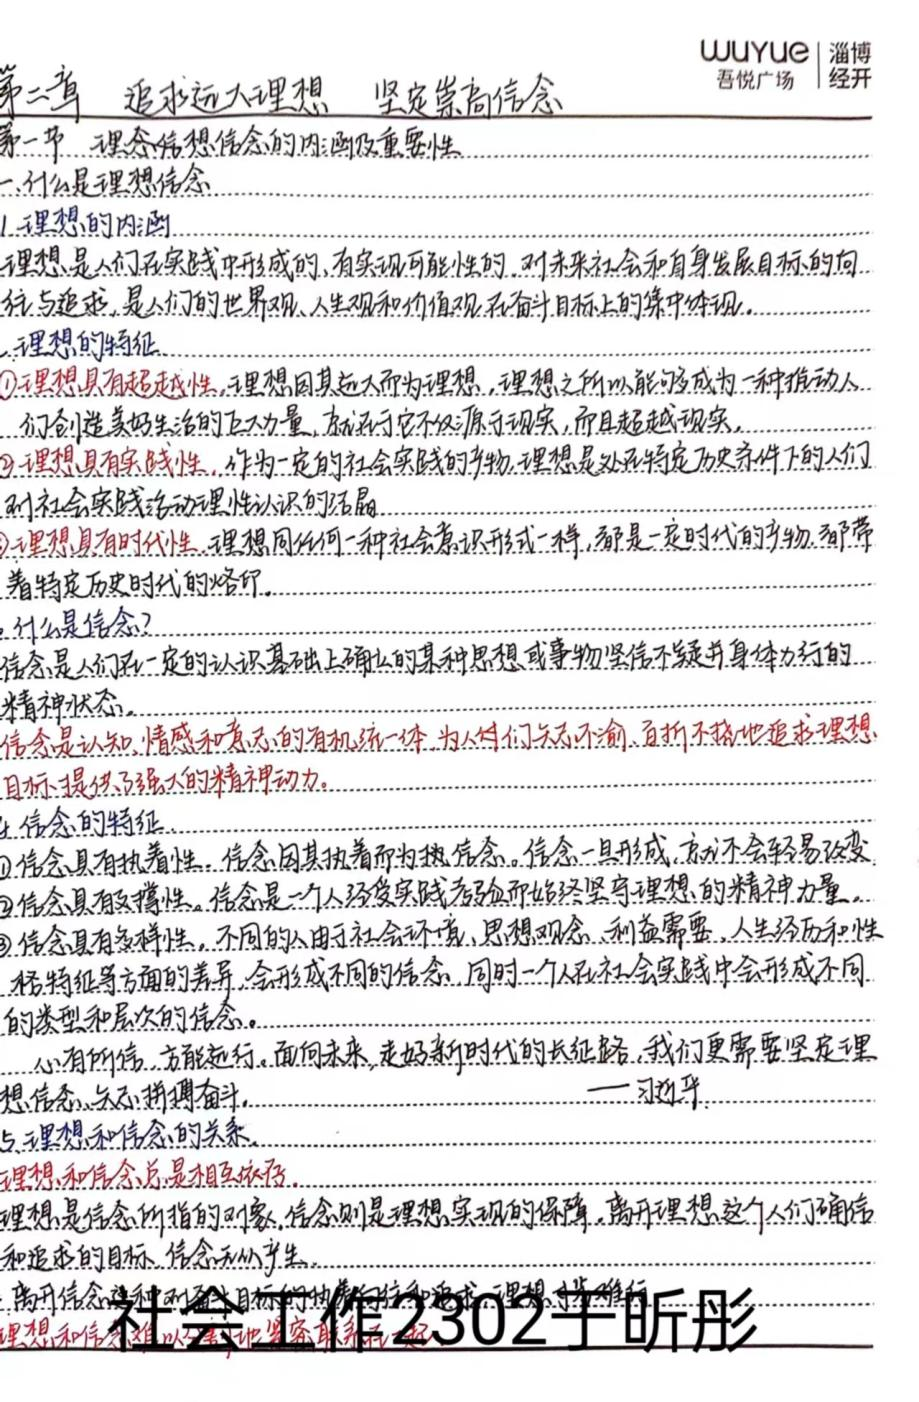 wuyue 吾悦广场 淄博经开
第二章 追求远大理想 坚定崇高信念
第一节 理念信想信念的内涵及重要性
一.什么是理想信念
1.理想的内涵
理想是人们在实践中形成的、有实现可能性的、对未来社会和自身发展目标的向
往与追求,是人们的世界观、人生观和价值观在奋斗目标上的集中体现。
.理想的特征
①理想具有超越性,理想因其远大而为理想,理想之所以能够成为一种推动人
们创造美好生活的巨大力量,就在于它不仅源于现实,而且超越现实。
②理想具有实践性,作为一定的社会实践的产物,理想是处在特定历史条件下的人们
对社会实践活动理性认识的结晶
③理想具有时代性,理想同任何一种社会意识形式一样,都是一定时代的产物,都带
着特定历史时代的烙印。
.什么是信念?
信念是人们在一定的认识基础上确立的某种思想或事物坚信不疑并身体力行的
精神状态。
信念是认知、情感和意志的有机统一体,为人们矢志不渝、百折不挠地追求理想
目标提供了强大的精神动力。
4.信念的特征
①信念具有执着性。信念因其执着而为信念。信念一旦形成,就不会轻易改变
②信念具有支撑性。信念是一个人经受实践考验而始终坚守理想的精神力量。
③信念具有多样性。不同的人由于社会环境、思想观念、利益需要、人生经历和性
格特征等方面的差异,会形成不同的信念,同时一个人在社会实践中会形成不同
的类型和层次的信念。
心有所信,方能远行。面向未来,走好新时代的长征路,我们更需要坚定理
想信念、矢志拼搏奋斗。 ——习近平
5.理想和信念的关系
理想和信念总是相互依存。
理想是信念所指的对象,信念则是理想实现的保障。离开理想这个人们确信
和追求的目标,信念无从产生。
离开信念这种对奋斗目标的执着向往和追求,理想寸步难行
理想和信念难以分割地紧密联系在一起
社会工作2302于昕彤